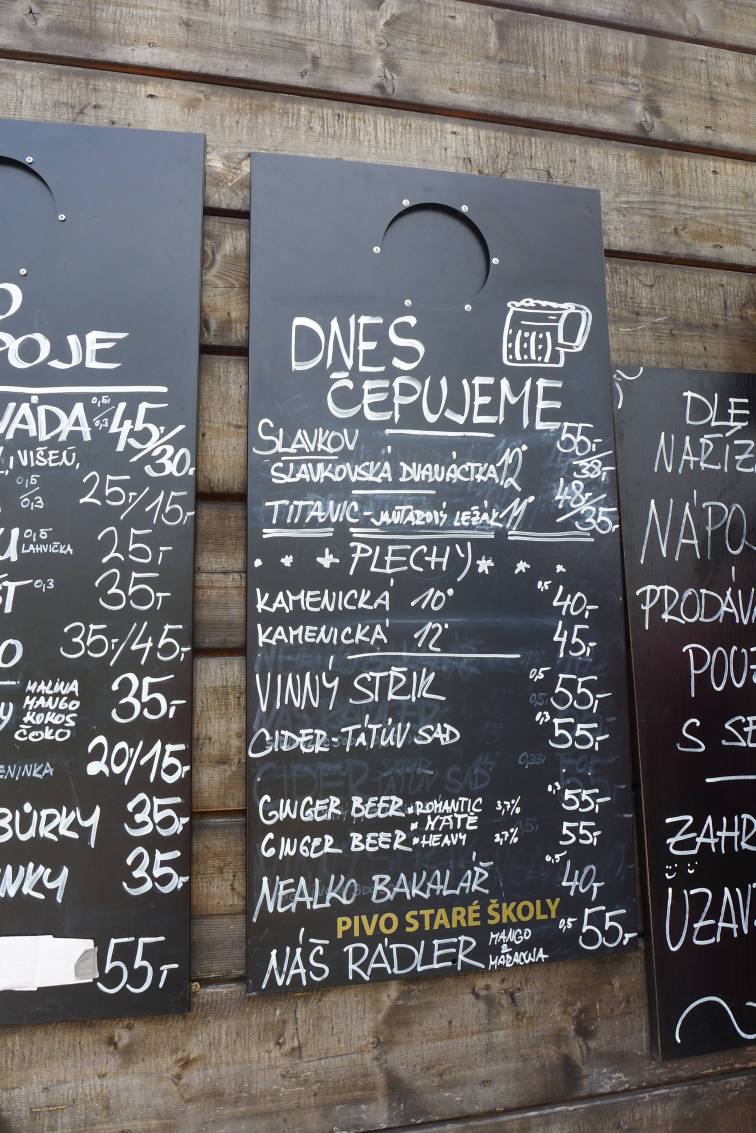 POJE
45/30,-
VIŠEŇ,
0,5/0,3 25,-/15,-
0,5 LAHVIČKA 25,-
0,3 35,-
35,-/45,-
MALINA
MANGO
KOKOS
ČOKO
35,-
20/15,-
35,-
35,-
55,-
DNES
ČEPUJEME
SLAVKOV 55,-
SLAVKOVSKÁ DVANÁCTKA 12° /38,-
TITANIC - JANTAROVÝ LEŽÁK 11° 48,-/35,-
* * * PLECHY * * *
KAMENICKÁ 10° 0,5 40,-
KAMENICKÁ 12° 45,-
VINNÝ STŘIK 0,5 55,-
CIDER - TÁTŮV SAD 0,3 55,-
GINGER BEER • ROMANTIC 3,7% 0,3 55,-
GINGER BEER • HEAVY 3,7% 55,-
NEALKO BAKALÁŘ 0,5 40,-
PIVO STARÉ ŠKOLY
NÁŠ RADLER MANGO 0,5 55,-
DLE
NAŘÍZ
NÁPO
PRODÁVA
POUZ
S SE
ZAHR
UZAV